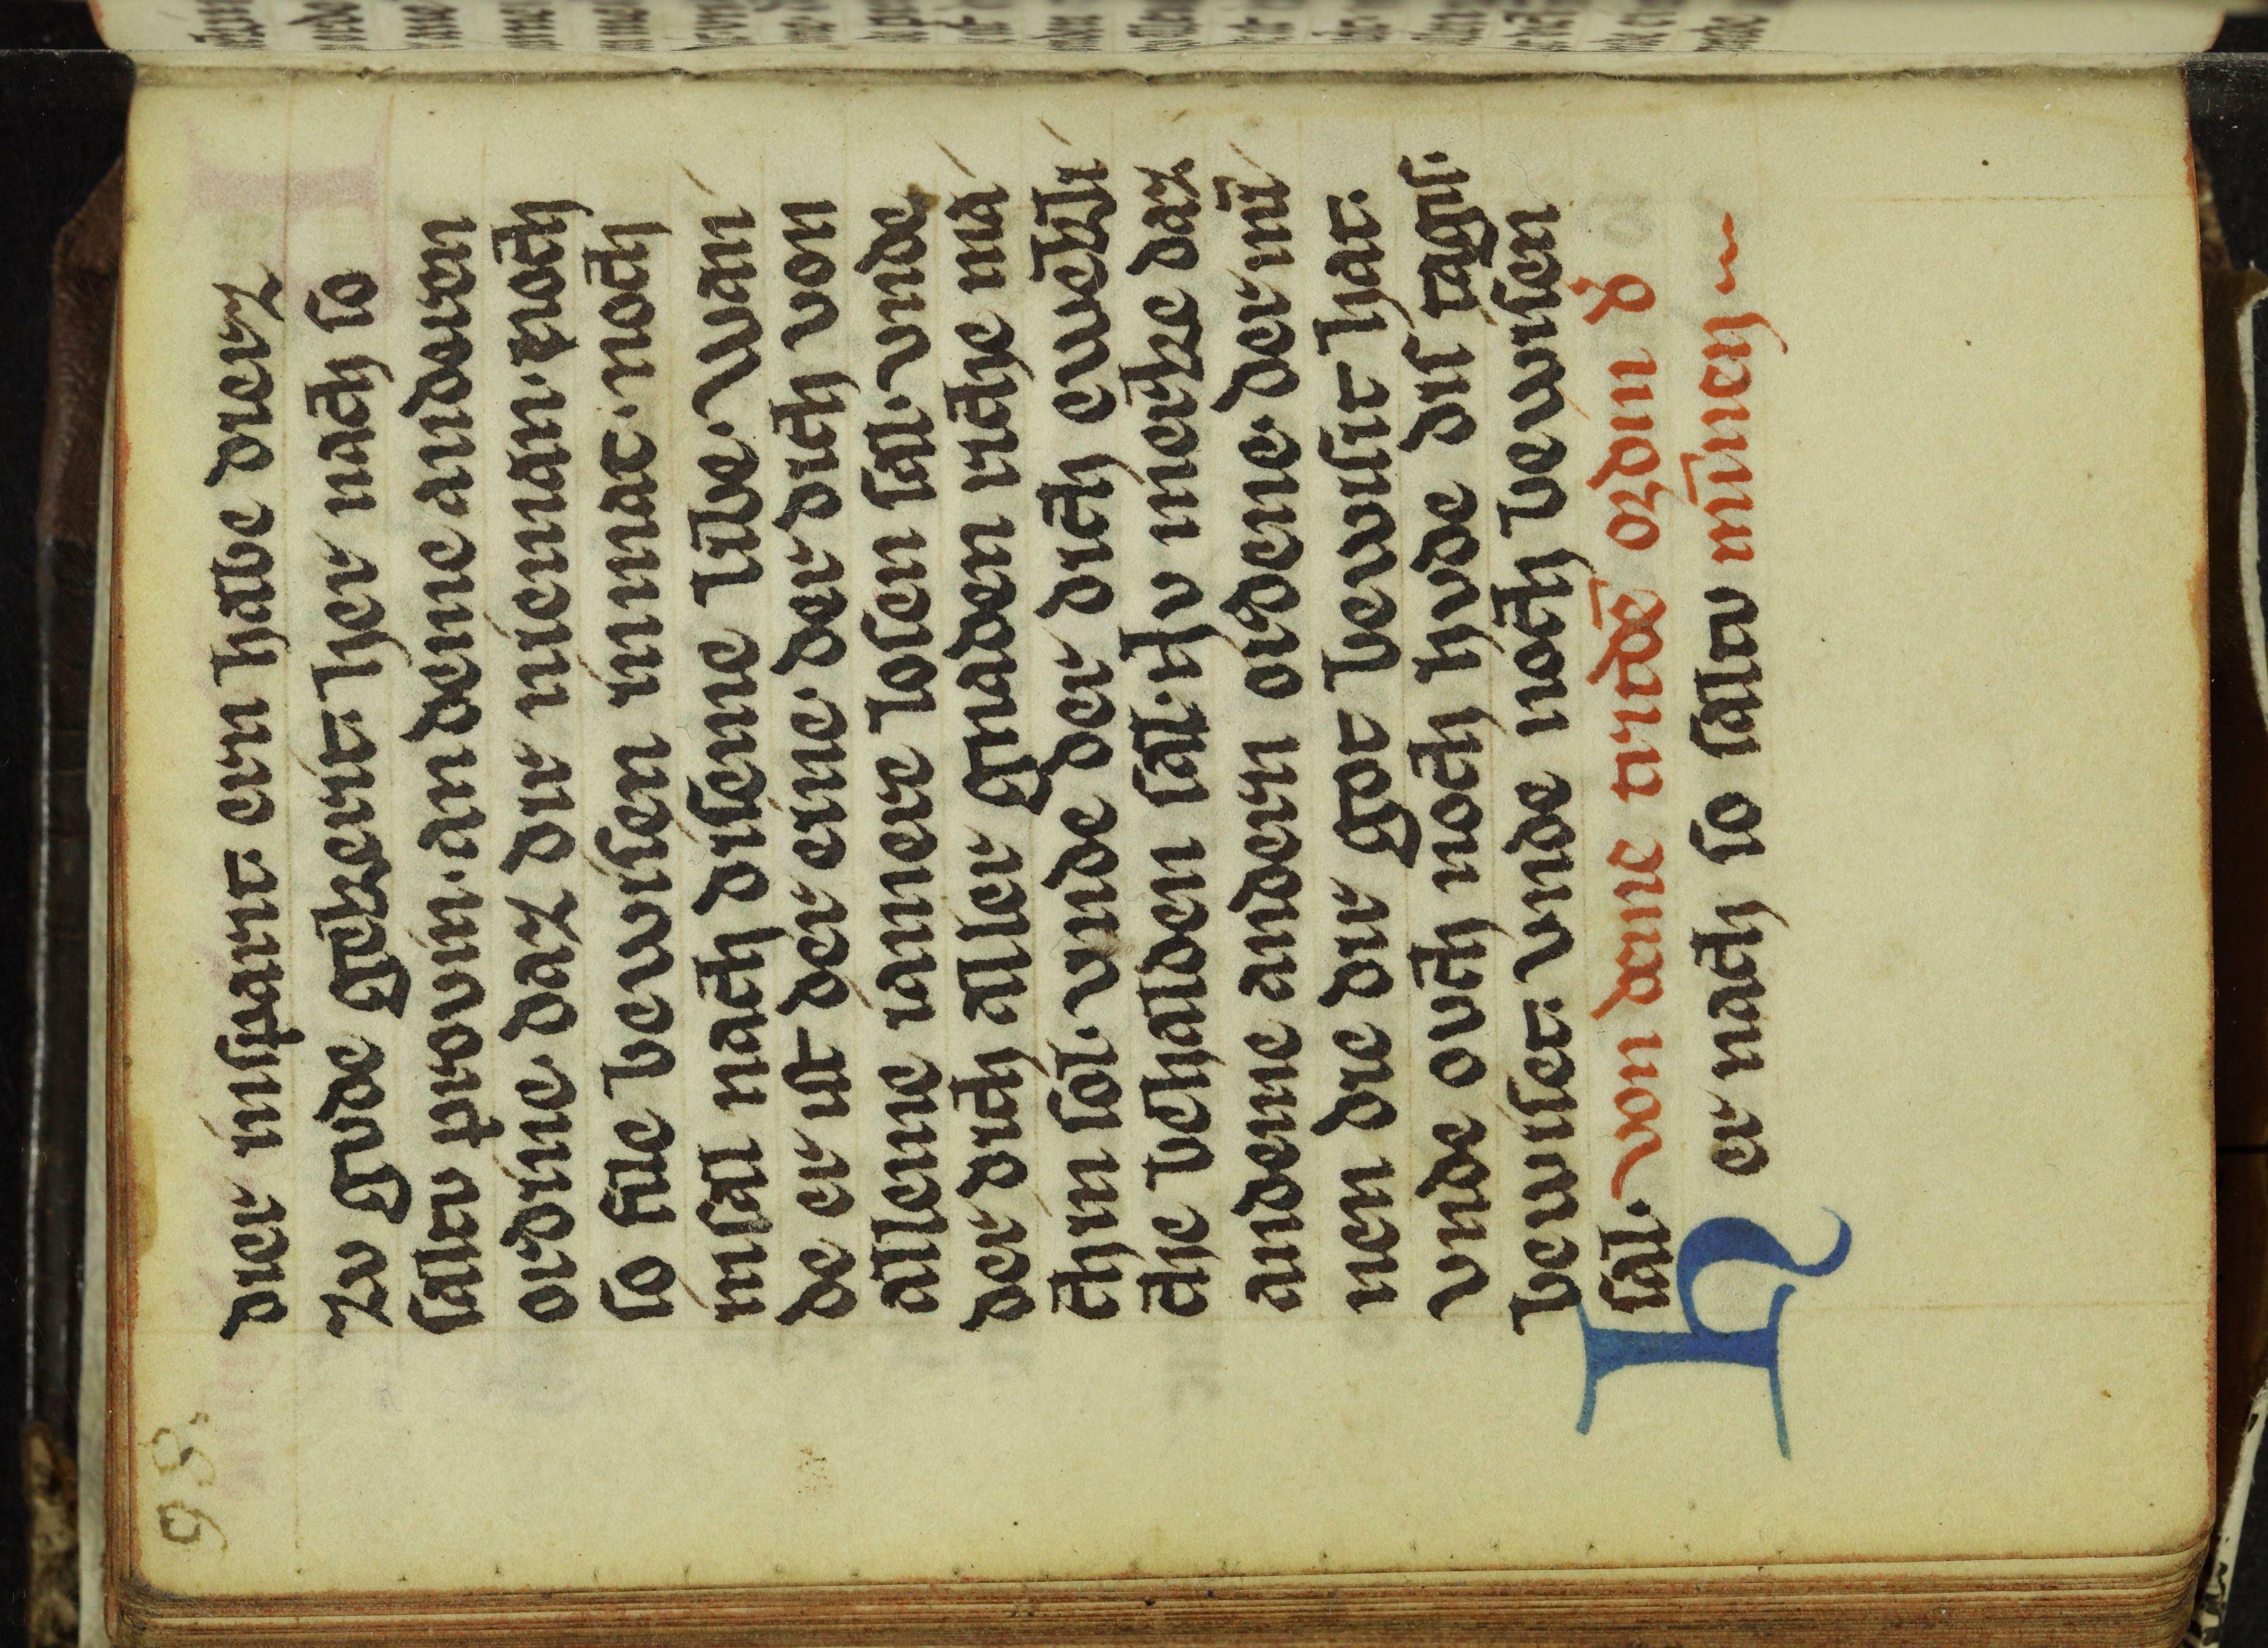 98.
dier inspart. ern habe dierz
zv gvde gekerit. her nach so
saltv provin. an deme anderen
ordine. daz dir nieman. noch
so file bewisen inmac. noch
insal nach diseme libe. Wan
de er ist der eine. der dich von
alleme iamere losen sal. vnde
der dich aller gnaden riche ma
chin sol. vnde der dich ewekli
che behalden sal. Nv merke daz
andeme andern ordene. der min̄
nen die dir got bewisit hat.
vnde ovch noch hvde dis tagis.
bewiset. vnde noch bewisen
sal. von deme tritdē ordin d̓
er nach so saltv min̄nen
H